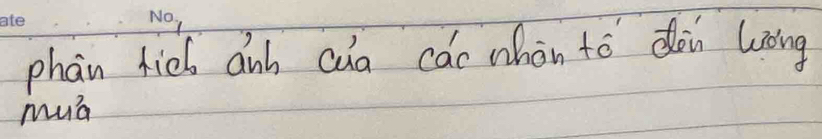 ate No,
phân tích ảnh của các nhân tố đến lương
mưa